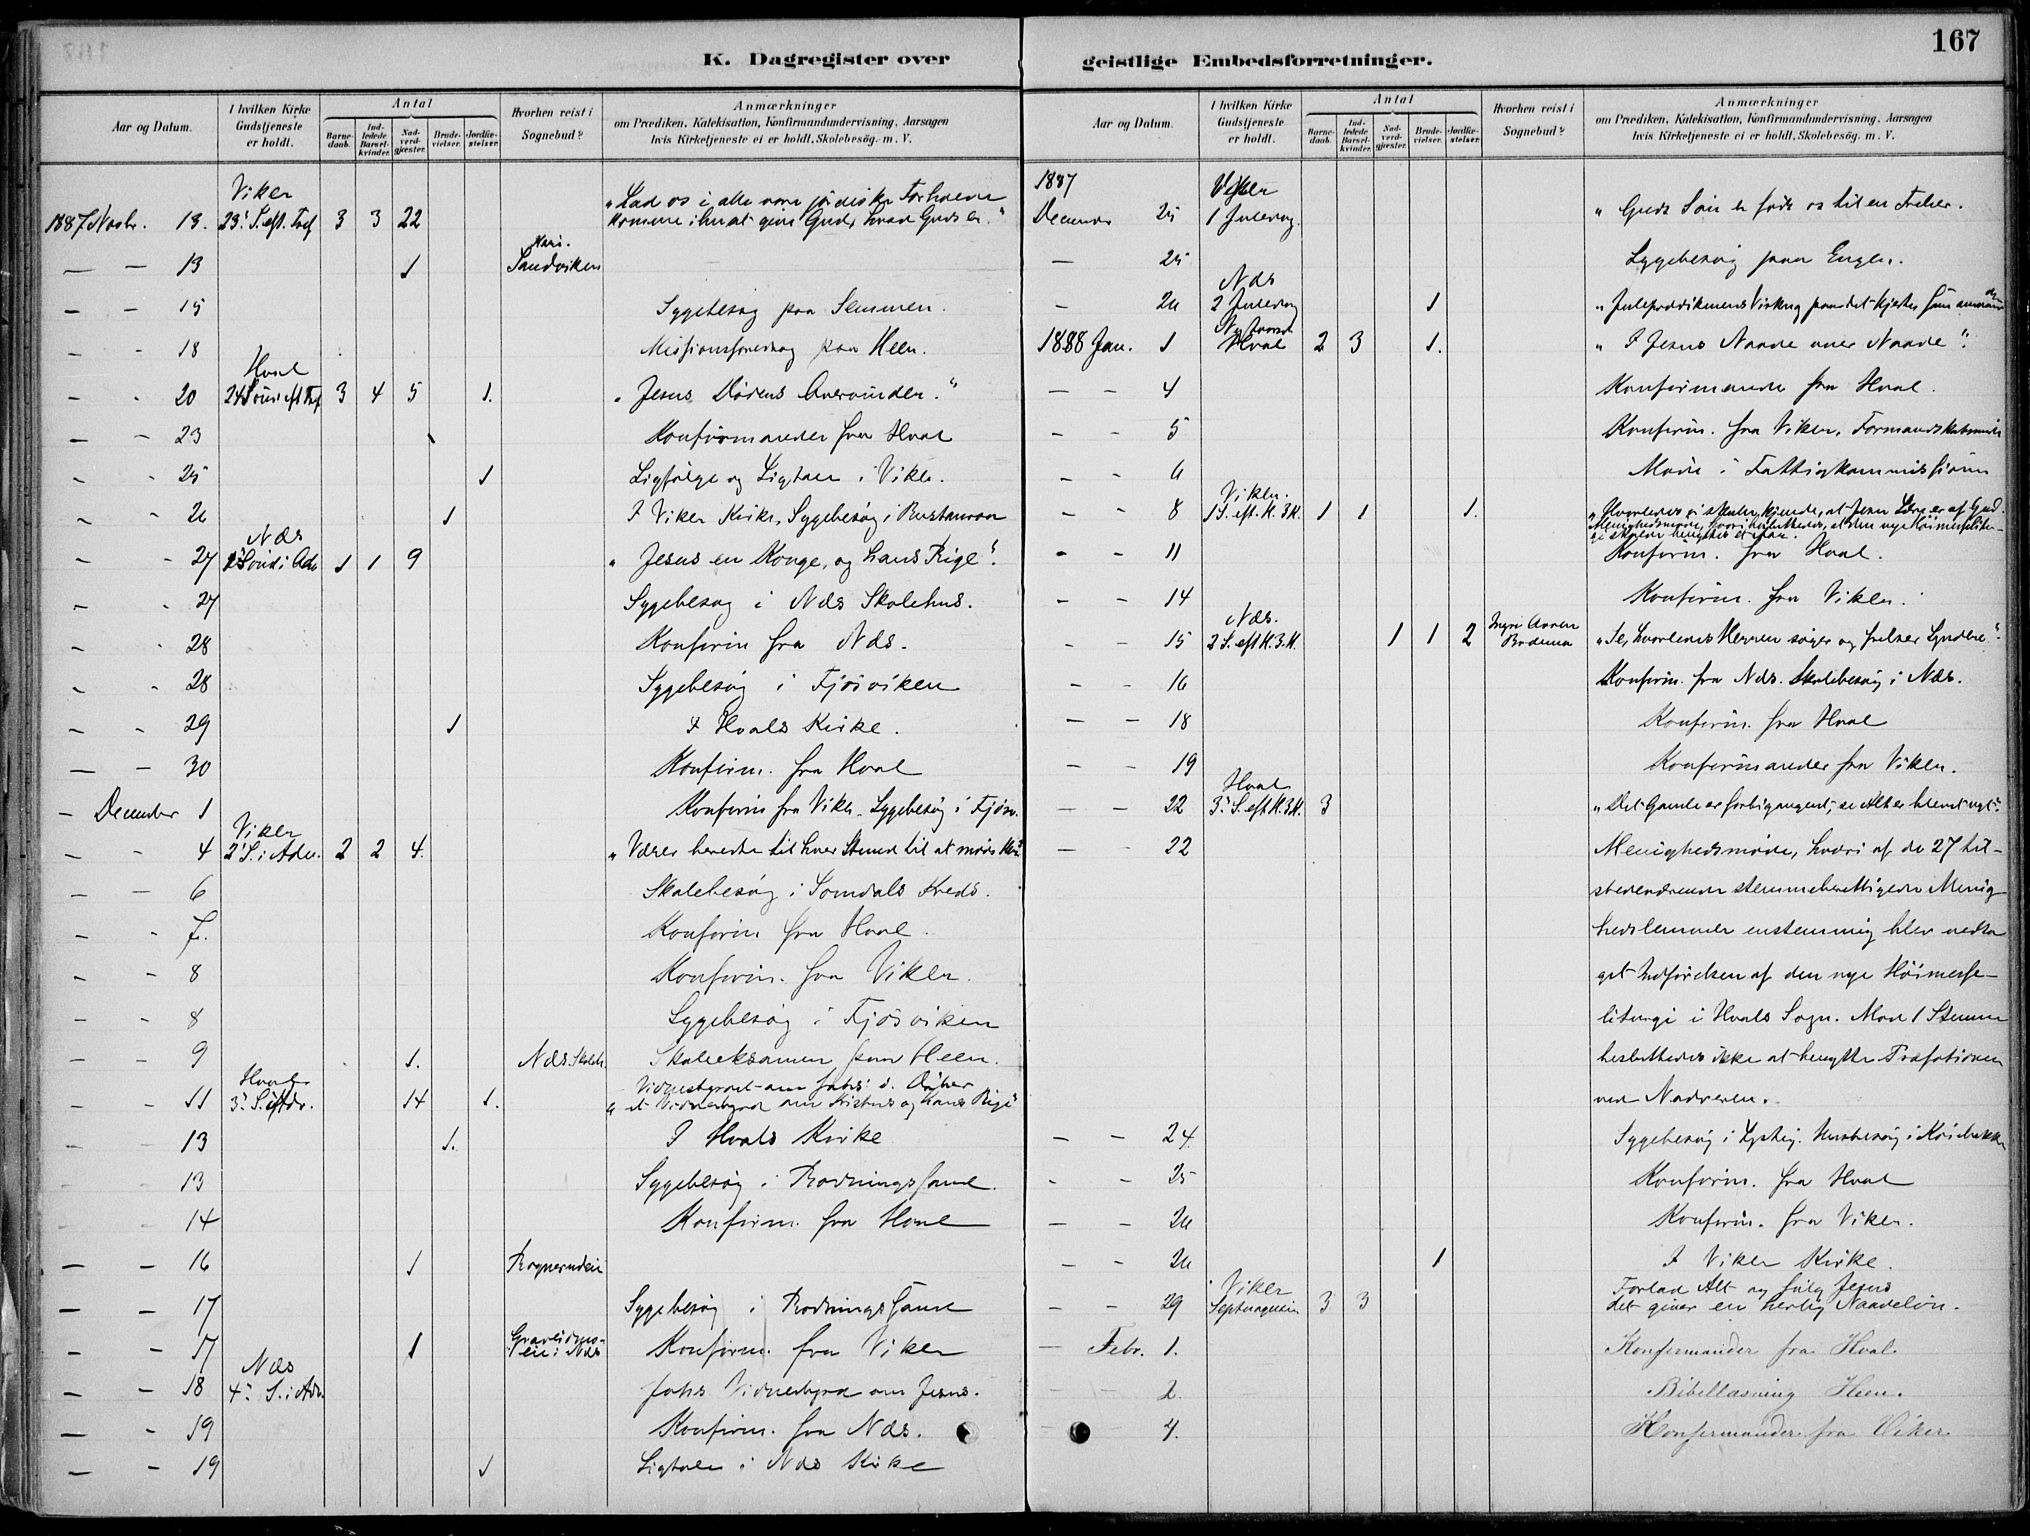 K. Dagregister over geistlige Embedsforretninger.
167
Aar og Datum. I hvilken Kirke Gudstjeneste er holdt. Antal Barnedaab. Indledede Barselkvinder. Nadverdgjæster. Brudevielser. Jordfæstelser. Hvorhen reist i Sognebud? Anmærkninger om Prædiken, Katekisation, Konfirmandundervisning, Aarsagen hvis Kirketjeneste ei er holdt, Skolebesøg. m. V.
Viker
1887 Novbr. 13. 23' S. eft. Tref 3 3 22 "Lad os i alle vore jordiske Forholde
komme ihu at give Gud, hvad Guds er."
— — 13 1 Sandviken
— — 15 Sygebesøg paa Semmen.
— — 18 Missionsforedrag paa Heen.
Hval
— — 20 24 Sønd. eft Tref 3 4 5 1. "Jesus Dødens Overvinder."
— — 23 Konfirmander fra Hval
— — 25 1 Ligfølge og Ligtale i Viker.
— — 26 1 I Viker Kirke, Sygebesøg i
Næs
— — 27 1 Sønd i Adv 1 1 9 "Jesus en Konge, og hans Rige".
— — 27 Sygebesøg i Næs Skolehus.
— — 28 Konfirm fra Næs.
— — 28 Sygebesøg i Fjøsviken
— — 29 1 I Hvals Kirke.
— — 30 Konfirm. fra Hval
— December 1 Konfirm fra Viker. Sygebesøg i
Viker
— — 4 2' S. i Adv. 2 2 4. "Værer beredte til hver Stund til at møde
— — 6 Skolebesøg i Somdals Kreds.
— — 7. Konfirm fra Hval.
— — 8 Konfirm. fra Viker.
— — 8 Sygebesøg i Fjøsviken
— — 9 1. Næs Skoleh. Skoleeksamen paa Heen.
Hval
— — 11 3' S. i Adv. 14 1. Vidnesbyrdet om Johs' d. Døber
"et Vidnesbyrd om Kristus og hans Rige"
— — 13 1. I Hvals Kirke
— — 13 Sygebesøg i
— — 14 Konfirm. fra Hval
— — 16 1
— — 17 Sygebesøg i
— — 17 1 i Næs Konfirm. fra Viker
Næs
— — 18 4' S. i Adv. Johs Vidnesbyrd om Jesus.
— — 19 Konfirm. fra Næs.
— — 19 1 Ligtale i Næs Kirke
Aar og Datum. I hvilken Kirke Gudstjeneste er holdt. Antal Barnedaab. Indledede Barselkvinder. Nadverdgjæster. Brudevielser. Jordfæstelser. Hvorhen reist i Sognebud? Anmærkninger om Prædiken, Katekisation, Konfirmandundervisning, Aarsagen hvis Kirketjeneste ei er holdt, Skolebesøg. m. V.
1887 Viker
December 25 1 Juledag. "Guds Søn er født os til en Frelser.
— 25 Sygebesøg paa Engen.
Næs
— 26 2 Juledag 1 "Juleprædikenens Virkning paa det Hjerte,
Nytaarsd
1888 Jan. 1 Hval 2 3 1. "I Jesus Naade over Naade".
— — 4 Konfirmander fra Hval.
— — 5 Konfirm. fra Viker. Formandskabsmøde
— — 6 Møde i Fattigkommissionen
Viker.
— — 8 1 S. eft. H. 3 K. 1 1 1. "Hvorledes vi skulle kjende, at Jesu Lære er af Gud.
Menighedsmøde, hvori besluttedes, at den nye Høimesselitur-
— — 11 Konfirm. fra Hval.
— — 14 Konfirm. fra Viker.
Næs.
— — 15 2 S. eft H. 3. K. 1 1 2 "Se, hvorledes Herren søger og frelser Syndere".
— — 16 Konfirm. fra Næs. Skolebesøg i Næs.
— — 18 Konfirm. fra Hval
— — 19 Konfirmander fra Viker.
Hval
— — 22 3' S. eft H. 3 K. 3 "Det Gamle er forbigangent, se Alt er blevet nyt".
— — 22 Menighedsmøde, hvori af de 27 til-
stedeværende stemmeberettigede Menig-
hedslemmer enstemmig blev vedta-
get Indførelsen af den nye Høimesse-
liturgi i Hvals Sogn. Mod 1 Stemme
besluttedes ikke at benytte Præfationen
ved Nadveren.
— — 24. Sygebesøg i
— — 25 Konfirm. fra Hval
— — 26 Konfirm. fra Viker.
— — 26 1 I Viker Kirke.
Viker
— — 29 Septuagesim 3 3 Forlad Alt og følg Jesus
det giver en herlig Naadeløn.
— Febr. 1. Konfirmander fra Hval.
— — 2. Bibellæsning Heen.
— 4. Konfirmander fra Viker